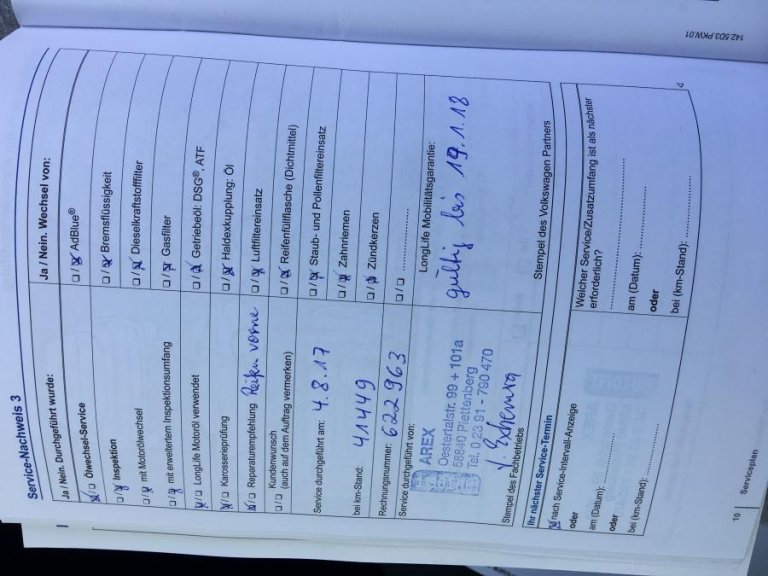 142.5D3.PKW.01
Service-Nachweis 3
Ja / Nein. Durchgeführt wurde:
Ölwechsel-Service
Inspektion
mit Motorölwechsel
mit erweitertem Inspektionsumfang
LongLife Motoröl verwendet
Karosserieprüfung
Reparaturempfehlung Reifen vorne
Kundenwunsch
(auch auf dem Auftrag vermerken)
Service durchgeführt am: 4.8.17
bei km-Stand: 41449
Rechnungsnummer: 622963
Service durchgeführt von:
AREX
Oestertalstr. 99 + 101a
58840 Plettenberg
Tel. 0 23 91 - 790 470
Stempel des Fachbetriebs
Ja / Nein. Wechsel von:
AdBlue®
Bremsflüssigkeit
Dieselkraftstofffilter
Gasfilter
Getriebeöl: DSG®, ATF
Haldexkupplung: Öl
Luftfiltereinsatz
Reifenfüllflasche (Dichtmittel)
Staub- und Pollenfiltereinsatz
Zahnriemen
Zündkerzen
LongLife Mobilitätsgarantie:
gültig bis 19.1.18
Stempel des Volkswagen Partners
Ihr nächster Service-Termin
nach Service-Intervall-Anzeige
oder
am (Datum):
oder
bei (km-Stand):
Welcher Service/Zusatzumfang ist als nächster
erforderlich?
am (Datum):
oder
bei (km-Stand):
10 Serviceplan